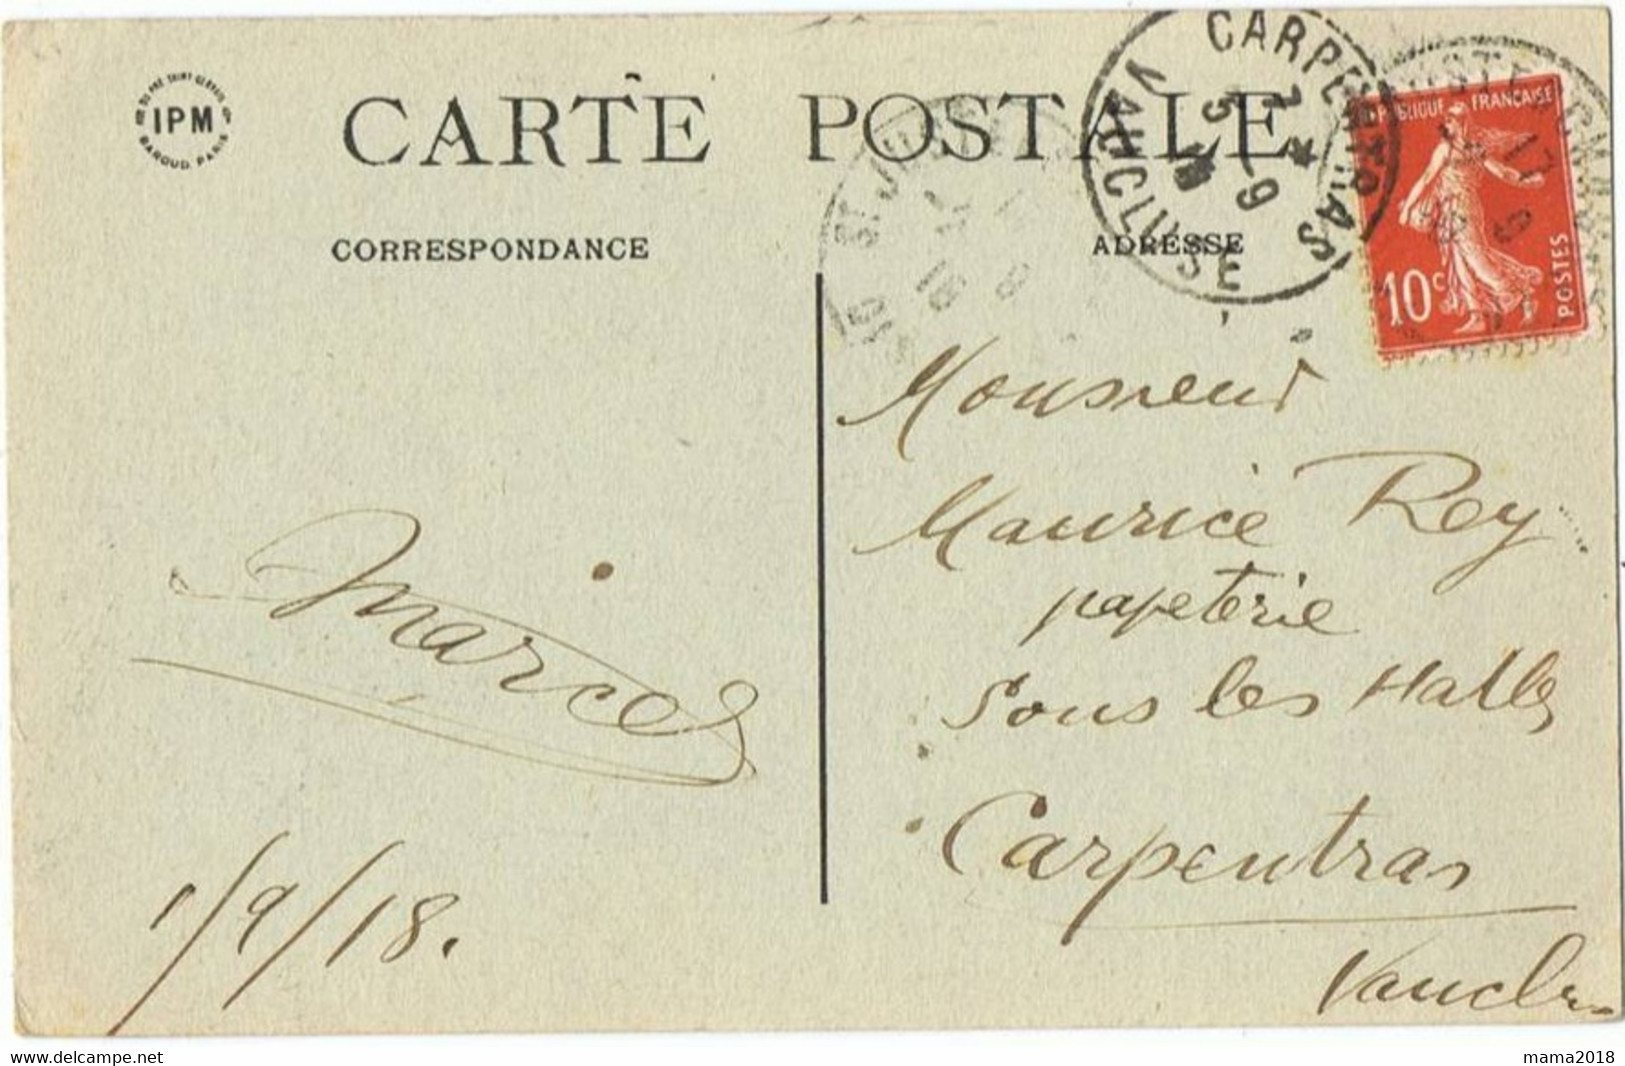 CARTE POSTALE
IPM
BAROUD, PARIS
CORRESPONDANCE
ADRESSE
CARPENTRAS
VAUCLUSE
7 *
5 - 9
18
RÉPUBLIQUE FRANÇAISE
10c
POSTES
Monsieur
Maurice Rey
papeterie
Sous les Halles
Carpentras
Vaucluse
Marcel
1/9/18.
mama2018